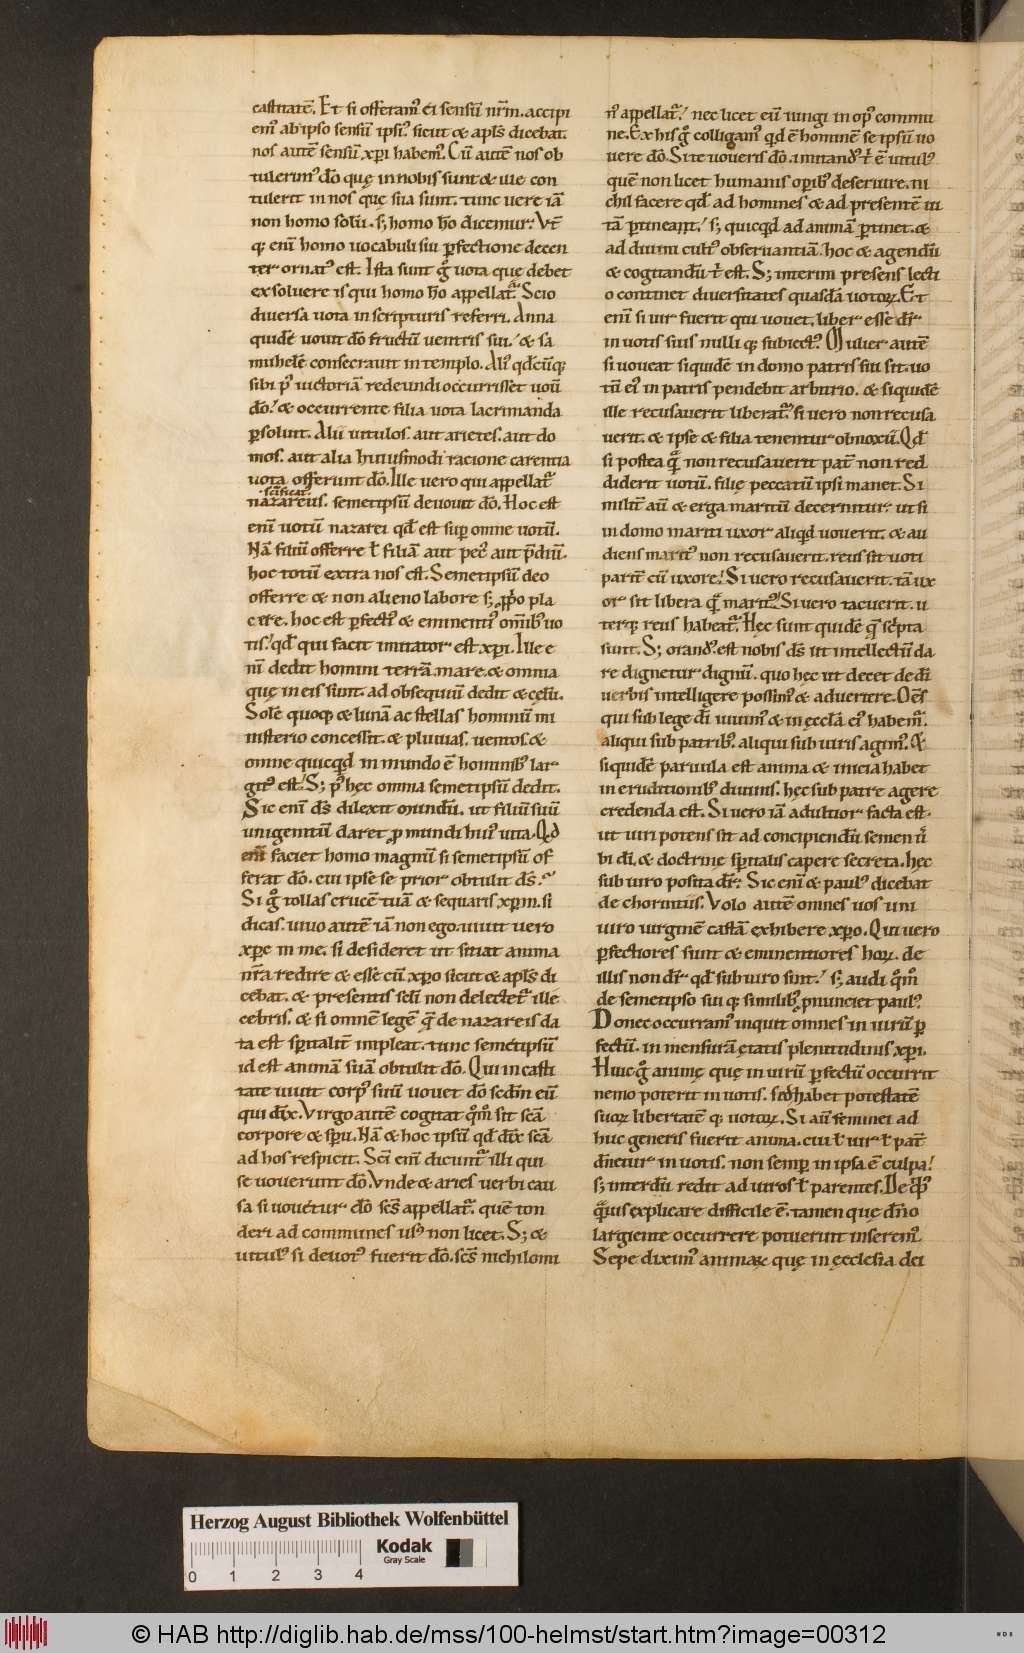 castitatē. Et si offeram᷒ ei sensū nr̄m. accipi
em᷒ ab ipso sensū ipsi᷒. sicut & apl̄s dicebat.
nos autē sensū xp̄i habem᷒. Cū autē nos ob
tulerim᷒ dō quę in nobis sunt & ille con
tulerit in nos quę sua sunt. tunc uere iā
non homo solū. s; homo h̄o dicemur. Vt̄
q; enī homo uocabuli sui ꝑfectione decen
ter ornat᷒ est. Ista sunt gͦ uota que debet
exsoluere is qui homo h̄o appellat᷑. Scio
diuersa uota in scripturis referri. Anna
quidē uouit dō fructū uentris sui. & sa
muhelē consecrauit in templo. Ali᷒ qd̄cūq;
sibi p᷒ uictoriā redeundi occurrisset uoū
dō. & occurrente filia uota lacrimanda
ꝑsoluit. Alii uitulos. aut arietes. aut do
mos. aut alia huiusmodi racione carentia
uota offerunt dō. Ille uero qui appellat᷑
sc̄ificat᷒
nazareus. semetipsū deuouit dō. Hoc est
enī uotū nazarei qd̄ est suꝑ omne uotū.
Nā filiū offerre ł filiā aut pec᷒ aut p̄diū.
hoc totū extra nos est. Semetipsū deo
offerre & non alieno labore s; ꝓp̄o pla
cere. hoc est ꝑfecti᷒ & eminenti᷒ om̄ib᷒ uo
tis. qd̄ qui facit imitator est xp̄i. Ille e
nī dedit homini terrā. mare. & omnia
quę in eis sunt. ad obsequiū dedit & cęlū.
Solē quoq; & lunā ac stellas hominū mi
nisterio concessit. & pluuias. uentos. &
omne quicq̇d in mundo ē hominib᷒ lar
git᷒ est. S; p᷒ hęc omnia semetipsū dedit.
Sic enī ds̄ dilexit mundū. ut filiū suū
unigenitū daret ꝓ mundi hui᷒ uita. Qd̄
enī faciet homo magnū si semetipsū of
ferat dō. cui ipse se prior obtulit ds̄.
Si gͦ tollas crucē tuā & sequaris xp̄m. si
dicas. uiuo autē iā non ego. uiuit uero
xp̄c in me. si desideret ut sitiat anima
nr̄a redire & esse cū xp̄o sicut & apl̄s di
cebat. & presentis sc̄li non delectet᷑ ille
cebris. & si omnē legē q̄ de nazareis da
ta est sp̄italit̄ impleat. tunc semetipsū
id est animā suā obtulit dō. Qui in casti
tate uiuit corp᷒ suū uouet dō sc̄dm eū
qui dix̄. Virgo autē cogitat qͦmͦ sit sc̄ā
corpore & sp̄u. Nā & hoc ipsū qd̄ dix̄ sc̄ā
ad hos respicit. Sc̄i enī dicunt᷑ illi qui
se uouerunt dō. Vnde & aries uerbi cau
sa si uouetur dō sc̄s appellat᷑. quē ton
deri ad communes us᷒ non licet. S; &
uitul᷒ si deuot᷒ fuerit dō. sc̄s nichilomi
n᷒ appellat᷑. nec licet eū iungi in op᷒ commu
ne. Ex his gͦ colligam᷒ qd̄ ē hominē se ipsū uo
uere dō. Si te uoueris dō. imitand᷒ t͛ ē uitul᷒
quē non licet humanis oꝑib᷒ deseruire. ni
chil facere qd̄ ad homines & ad presentē ui
tā ꝑtineant. s; quicq̇d ad animā ꝑtinet. &
ad diuini cult᷒ obseruantiā. hoc & agendū
& cogitandū t͛ est. S; interim presens lecti
o continet diuersitates quasdā uotoꝝ. Et
enī si uir fuerit qui uouet. liber esse dr̄
in uotis suis nulli q; subiect᷒. Mulier autē
si uoueat siquidē in domo patris sui sit. uo
tū ei᷒ in patris pendebit arbitrio. & siquidē
ille recusauerit liberat᷑. si uero non recusa
uerit. & ipse & filia tenentur obnoxii. Qd̄
si postea q̄ non recusauerit pat̄ non red
diderit uotū. filię peccatū ipsi manet. Si
milit̄ aū & erga maritū decernitur ut si
in domo mariti uxor aliqd̄ uouerit. & au
diens marit᷒ non recusauerit. reus sit uoti
parit̄ cū uxore. Si uero recusauerit. tā ux
or sit libera q̄ marit᷒. Si uero tacuerit. u
terq; reus habeat᷑. Hęc sunt quidē q̄ sc̄pta
sunt. S; orand᷒ est nobis ds̄ ut intellectū da
re dignetur dignū. quo hęc ut decet de dī
uerbis intelligere possim᷒ & aduertere. Om̄s
qui sub lege dī uiuim᷒ & in ęccl̄a ei᷒ habem᷑.
aliqui sub patrib᷒. aliqui sub uiris agim᷒. &
siquidē paruula est anima & inicia habet
in eruditionib᷒ diuinis. hęc sub patre agere
credenda est. Si uero iā adultior facta est.
ut uiri potens sit ad concipiendū semen u͛
bi dī. & doctrine sp̄italis capere secreta. hęc
sub uiro posita dr̄. Sic enī & paul᷒ dicebat
de chorintiis. Volo autē omnes uos uni
uiro uirginē castā exhibere xp̄o. Qui uero
ꝑfectiores sunt & eminentiores hoꝝ. de
illis non dr̄ qd̄ sub uiro sint. s; audi qͦmͦ
de semetipso sui q; similib᷒ ꝓnunciet paul᷒.
Donec occurram᷒ inquit omnes in uirū ꝑ
fectū. in mensurā ętatis plenitudinis xp̄i.
Huic gͦ animę quę in uirū ꝑfectū occurrit
nemo poterit in uotis. s; habet potestatē
suoꝝ libertatē q; uotoꝝ. Si aū feminei ad
huc generis fuerit anima. cui ł uir ł pat̄
dn̄etur in uotis. non semꝑ in ipsa ē culpa.
s; interdū redit ad uiros ł parentes. De
explicare difficile ē. tamen quę dn̄o
largiente occurrere potuerint inserem᷒.
Sepe dixim᷒ animaꝝ quę in ęcclesia dei
Herzog August Bibliothek Wolfenbüttel
Kodak
Gray Scale
0 1 2 3 4
© HAB http://diglib.hab.de/mss/100-helmst/start.htm?image=00312